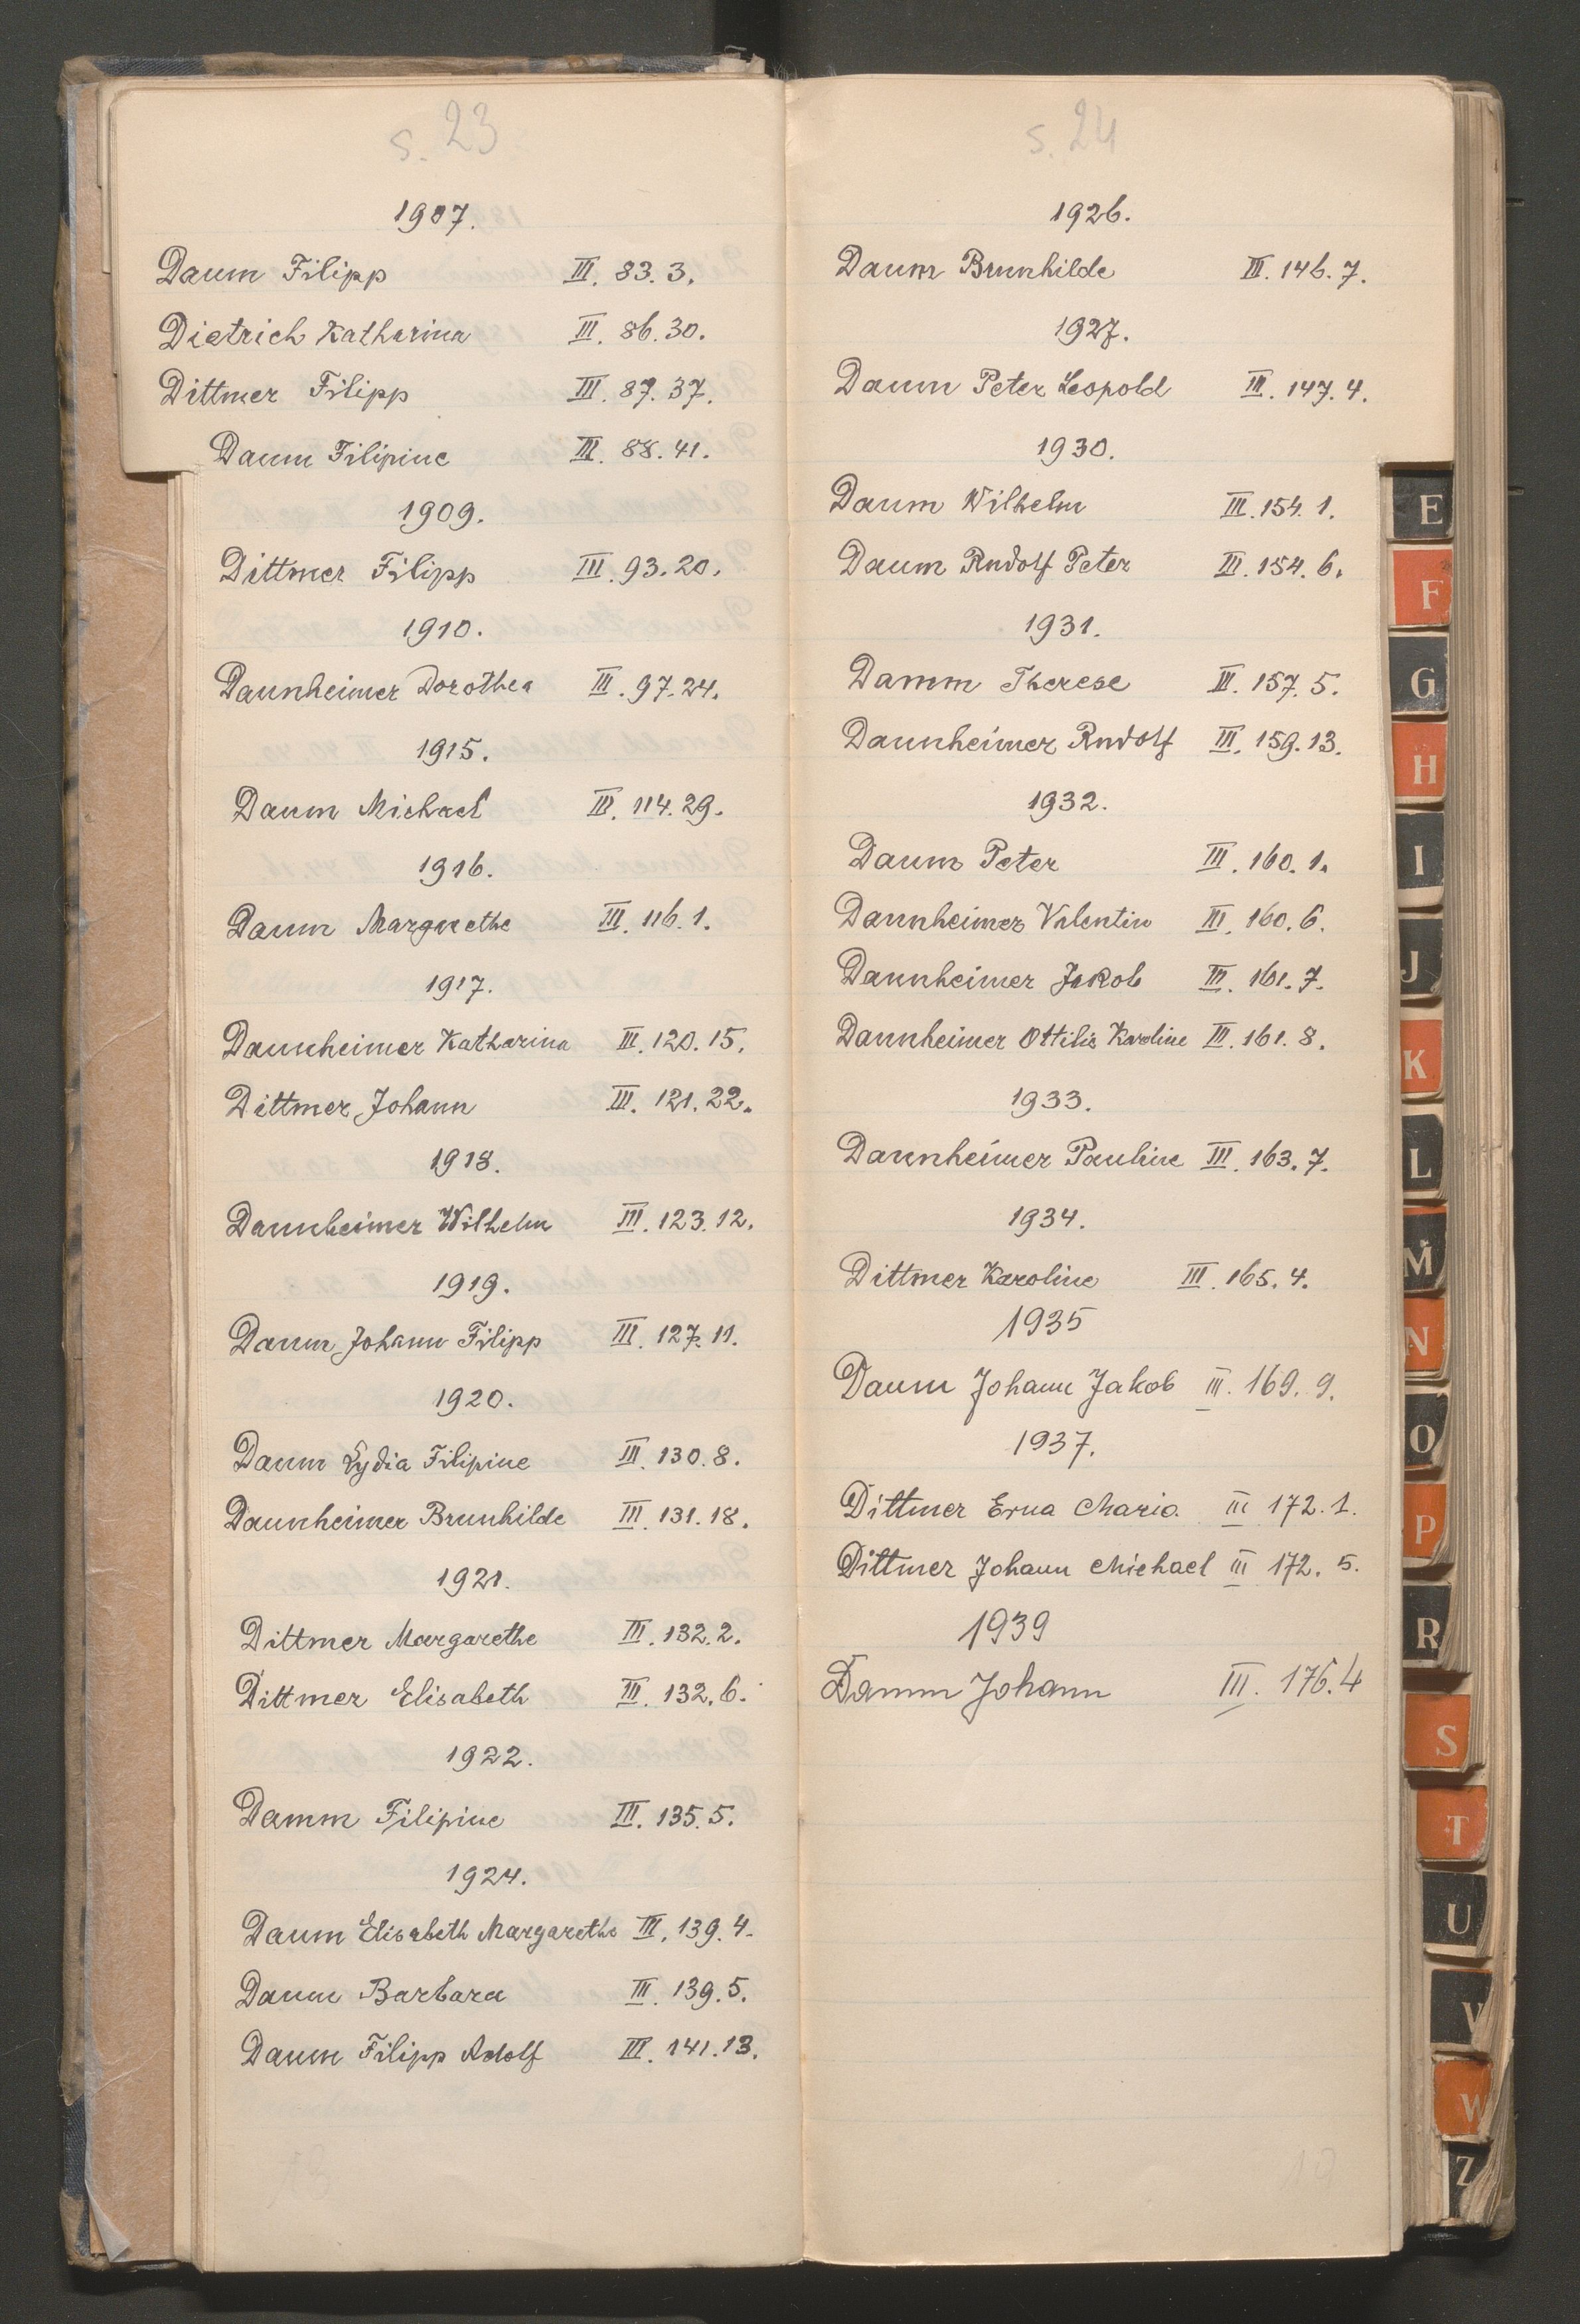 s. 23
1907.
Daum Filipp III. 83. 3.
Dietrich Katharina III. 86. 30.
Dittmer Filipp III. 87. 37.
Daum Filipine III. 88. 41.
1909.
Dittmer Filipp III. 93. 20.
1910.
Dannheimer Dorothea III. 97. 24.
1915.
Daum Michael III. 114. 29.
1916.
Daum Margarethe III. 116. 1.
1917.
Dannheimer Katharina III. 120. 15.
Dittmer Johann III. 121. 22.
1918.
Dannheimer Wilhelm III. 123. 12.
1919.
Daum Johann Filipp III. 127. 11.
1920.
Daum Lydia Filipine III. 130. 8.
Dannheimer Brunhilde III. 131. 18.
1921.
Dittmer Margarethe III. 132. 2.
Dittmer Elisabeth III. 132. 6.
1922.
Damm Filipine III. 135. 5.
1924.
Daum Elisabeth Margarethe III. 139. 4.
Daum Barbara III. 139. 5.
Daum Filipp Adolf III. 141. 13.
s. 24
1926.
Daum Brunhilde III. 146. 7.
1927.
Daum Peter Leopold III. 147. 4.
1930.
Daum Wilhelm III. 154. 1.
Daum Rudolf Peter III. 154. 6.
1931.
Damm Therese III. 157. 5.
Dannheimer Rudolf III. 159. 13.
1932.
Daum Peter III. 160. 1.
Dannheimer Valentin III. 160. 6.
Dannheimer Jakob III. 161. 7.
Dannheimer Ottilie Karoline III. 161. 8.
1933.
Dannheimer Pauline III. 163. 7.
1934.
Dittmer Karoline III. 165. 4.
1935
Daum Johann Jakob III. 169. 9.
1937.
Dittmer Erna Maria III 172. 1.
Dittmer Johann Michael III 172. 5.
1939
Damm Johann III. 176. 4
E
F
G
H
I
J
K
L
M
N
O
P
R
S
T
U
V
W
Z